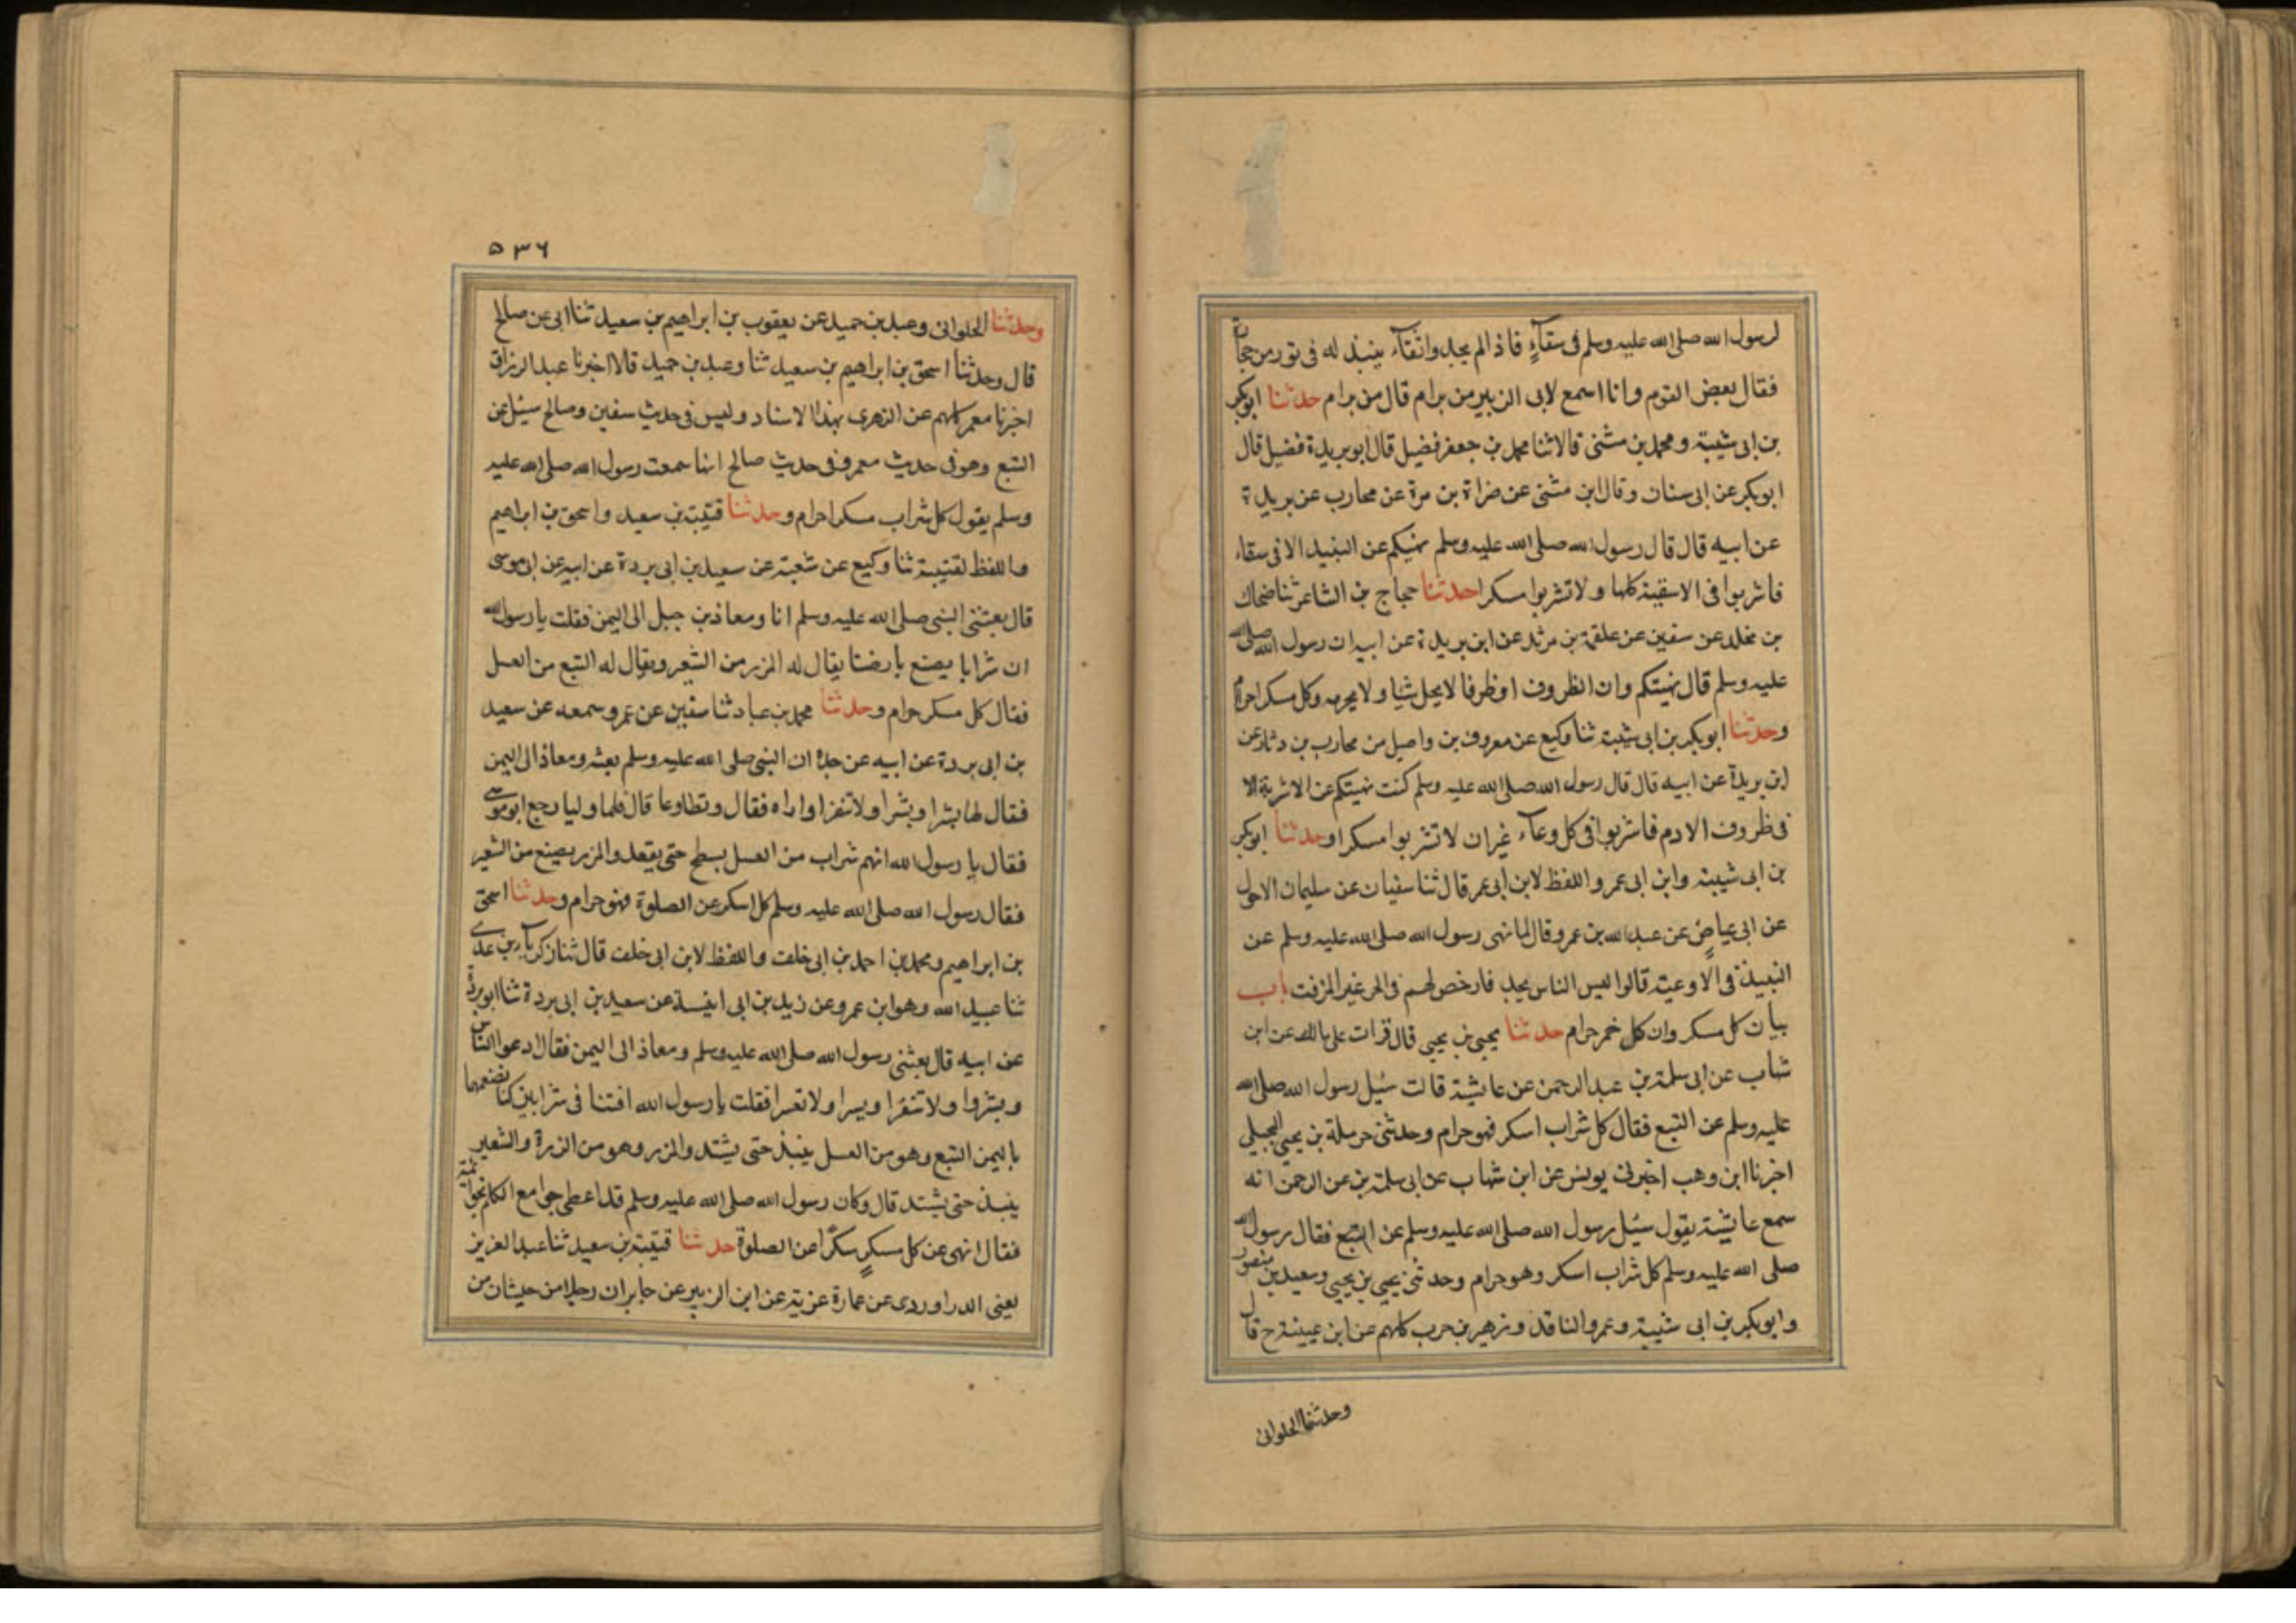 لرسول الله صلى الله عليه وسلم فى سقآءٍ فاذ الم يجد واتقآء ينبذ له فى تور من حجارة
فقال بعض القوم وانا اسمع لابى الزبير من برام قال من برام حدثنا ابوبكر
بن ابى شيبة ومحمد بن مثنى قالا ثنا محمد بن جعفر فضيل قال ابو بريدة فضيل قال
ابوبكر عن ابى سنان وقال ابن مثنى عن ضراة بن مرة عن محارب عن بريدة
عن ابيه قال قال رسول الله صلى الله عليه وسلم نهيتكم عن النبيذ الا فى سقاء
فاشربوا فى الاسقية كلها ولا تشربوا مسكرا حدثنا حجاج بن الشاعر ثنا ضحاك
بن مخلد عن سفين عن علقمة بن مرثد عن ابن بريدة عن ابيه ان رسول الله صلى الله
عليه وسلم قال نهيتكم وان الظروف او ظرفا لا يحل شيا ولا يحرمه وكل مسكر احرام
وحدثنا ابوبكر بن ابى شيبة ثنا وكيع عن معروف بن واصل من محارب بن دثار عن
ابن بريدة عن ابيه قال قال رسول الله صلى الله عليه وسلم كنت نهيتكم عن الاشربة الا
فى ظروف الادم فاشربوا فى كل وعآء غير ان لا تشربوا مسكرا وحدثنا ابوبكر
بن ابى شيبة وابن ابى عمر واللفظ لابن ابى عمر قال ثنا سفيان عن سليمان الاحول
عن ابى عياضٍ عن عبد الله بن عمرو قال لما نهى رسول الله صلى الله عليه وسلم عن
النبيذ فى الاوعية قالوا ليس الناس يجد فارخص لهم فى الجر غير المزفت باب
بيان كل مسكر وان كل خمر حرام حدثنا يحيى بن يحيى قال قرات على مالك عن ابن
شهاب عن ابى سلمة بن عبد الرحمن عن عايشة قالت سُيل رسول الله صلى الله
عليه وسلم عن التبع فقال كل شراب اسكر فهو حرام وحدثنى حرملة بن يحيى التجيلى
اخبرنا ابن وهب اخبرنى يونس عن ابن شهاب عن ابى سلمة بن عن الرحمن انه
سمع عايشة يقول سئيل رسول الله صلى الله عليه وسلم عن التبع فقال رسول الله
صلى الله عليه وسلم كل شراب اسكر وهو حرام وحدثنى يحيى بن يحيى وسعيد بن منصور
وابوبكر بن ابى شيبة وعمرو الناقد وزهير بن حرب كلهم عن ابن عيينة ح قال
وحدثنا الحلوانى
٥٣٦
وحدثنا الحلوانى وعبد بن حميد عن يعقوب بن ابراهيم بن سعيد ثنا ابى عن صالح
قال وحدثنا اسحق بن ابراهيم بن سعيد ثنا وعبد بن حميد قالا اخبرنا عبد الرزاق
اخبرنا معمر كلهم عن الزهرى بهذا الاسناد وليس فى حديث سفين وصالح سئل عن
التبع وهو فى حديث معمر وفى حديث صالح انها سمعت رسول الله صلى الله عليه
وسلم يقول كل شراب مسكر احرام وحدثنا قتيبة بن سعيد واسحق بن ابراهيم
واللفظ لقتيبة ثنا وكيع عن شعبة عن سعيد بن ابى بردة عن ابيه عن ابى موسى
قال بعثنى النبى صلى الله عليه وسلم انا ومعاذ بن جبل الى اليمن فقلت يا رسول الله
ان شرابا يصنع بارضنا يقال له المزر من الشعير ويقال له التبع من العسل
فقال كل مسكر حرام وحدثنا محمد بن عباد ثنا سفين عن عمرو سمعه عن سعيد
بن ابى بردة عن ابيه عن جده ان النبى صلى الله عليه وسلم بعثه ومعاذ الى اليمن
فقال لها بشرا وبشرا ولا تنفرا واراه فقال وتطاوعا قال فلما وليا رجع ابو موسى
فقال يا رسول الله انهم شراب من العسل يسطح حتى يقعد والمزر يصنع من الشعير
فقال رسول الله صلى الله عليه وسلم كل اسكر عن الصلوة فهو حرام وحدثنا اسحق
بن ابراهيم ومحمد بن احمد بن ابى خلف واللفظ لابن ابى خلف قال ثنا زكريآء بن عدى
ثنا عبيد الله وهو ابن عمرو عن زيد بن ابى انيسة عن سعيد بن ابى بردة ثنا ابو بردة
عن ابيه قال بعثنى رسول الله صلى الله عليه وسلم ومعاذ الى اليمن فقال ادعوا الناس
وبشروا ولا تنفرا ويسرا ولا تعسرا فقلت يا رسول الله افتنا فى شرابين كنا نصنعهما
باليمن التبع وهو من العسل ينبذ حتى يشتد والمزر وهو من الزرة والشعير
ينبذ حتى يشتد قال وكان رسول الله صلى الله عليه وسلم قد اعطى جوامع الكلم بخواتمه
فقال انهى عن كل مسكرٍ سكرًا عن الصلوة حدثنا قتيبة بن سعيد ثنا عبد العزيز
يعنى الدراوردى عن عمارة عزية عن ابن الزبير عن جابر ان رجلا من حيشان من